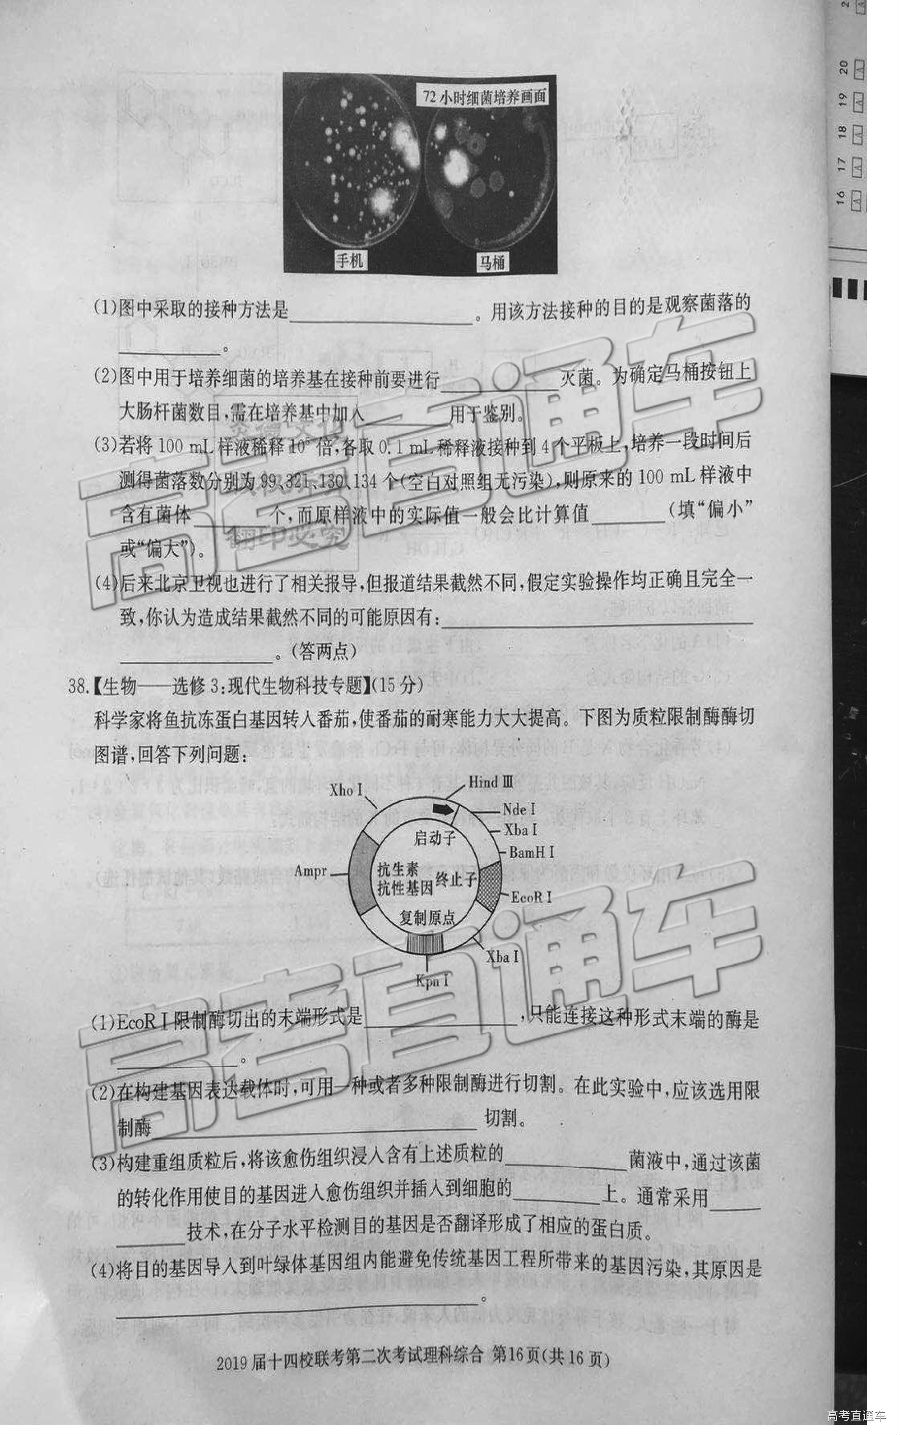 72小时细菌培养画面
手机
马桶
20 A
19 A
18 A
17 A
16 A
(1)图中采取的接种方法是________。用该方法接种的目的是观察菌落的
________。
(2)图中用于培养细菌的培养基在接种前要进行________灭菌。为确定马桶按钮上
大肠杆菌数目,需在培养基中加入________用于鉴别。
(3)若将100 mL样液稀释 倍,各取0.1 mL稀释液接种到4个平板上,培养一段时间后
测得菌落数分别为99、321、130、134个(空白对照组无污染),则原来的100 mL样液中
含有菌体________个,而原样液中的实际值一般会比计算值________(填“偏小”
或“偏大”)。
(4)后来北京卫视也进行了相关报导,但报道结果截然不同,假定实验操作均正确且完全一
致,你认为造成结果截然不同的可能原因有:________
________。(答两点)
38.【生物——选修3:现代生物科技专题】(15分)
科学家将鱼抗冻蛋白基因转入番茄,使番茄的耐寒能力大大提高。下图为质粒限制酶酶切
图谱,回答下列问题:
Xho I
Hind Ⅲ
Nde I
Xba I
BamH I
启动子
Ampr
抗生素
抗性基因
终止子
EcoR I
复制原点
Xba I
Kpn I
(1)EcoR I限制酶切出的末端形式是________,只能连接这种形式末端的酶是
________。
(2)在构建基因表达载体时,可用一种或者多种限制酶进行切割。在此实验中,应该选用限
制酶________切割。
(3)构建重组质粒后,将该愈伤组织浸入含有上述质粒的________菌液中,通过该菌
的转化作用使目的基因进入愈伤组织并插入到细胞的________上。通常采用________
________技术,在分子水平检测目的基因是否翻译形成了相应的蛋白质。
(4)将目的基因导入到叶绿体基因组内能避免传统基因工程所带来的基因污染,其原因是
________。
2019届十四校联考第二次考试理科综合 第16页(共16页)
高考直通车
高考直通车
翻印必究
高考直通车